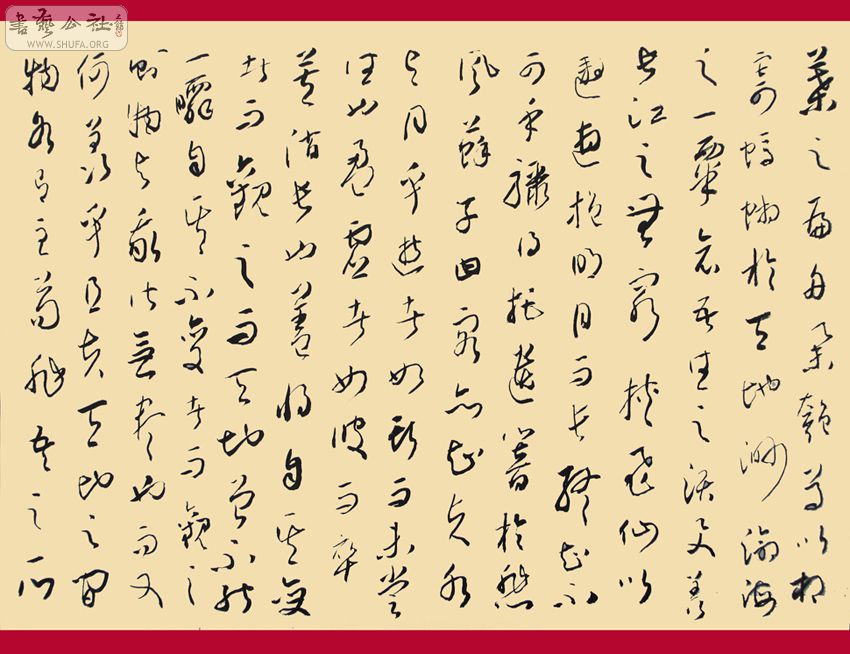 書藝公社
WWW.SHUFA.ORG
葉之扁舟舉匏尊以相
寄蜉蝣於天地渺滄海
之一粟哀吾生之須臾羨
長江之無窮挾飛仙以
遨遊抱明月而長終知不
可乎驟得托遺響於悲
風蘇子曰客亦知夫水
與月乎逝者如斯而未嘗
往也盈虛者如彼而卒
莫消長也蓋將自其變
者而觀之而天地曾不能
一瞬自其不變者而觀之
則物與我皆無盡也而又
何羨乎且夫天地之間
物各有主苟非吾之所